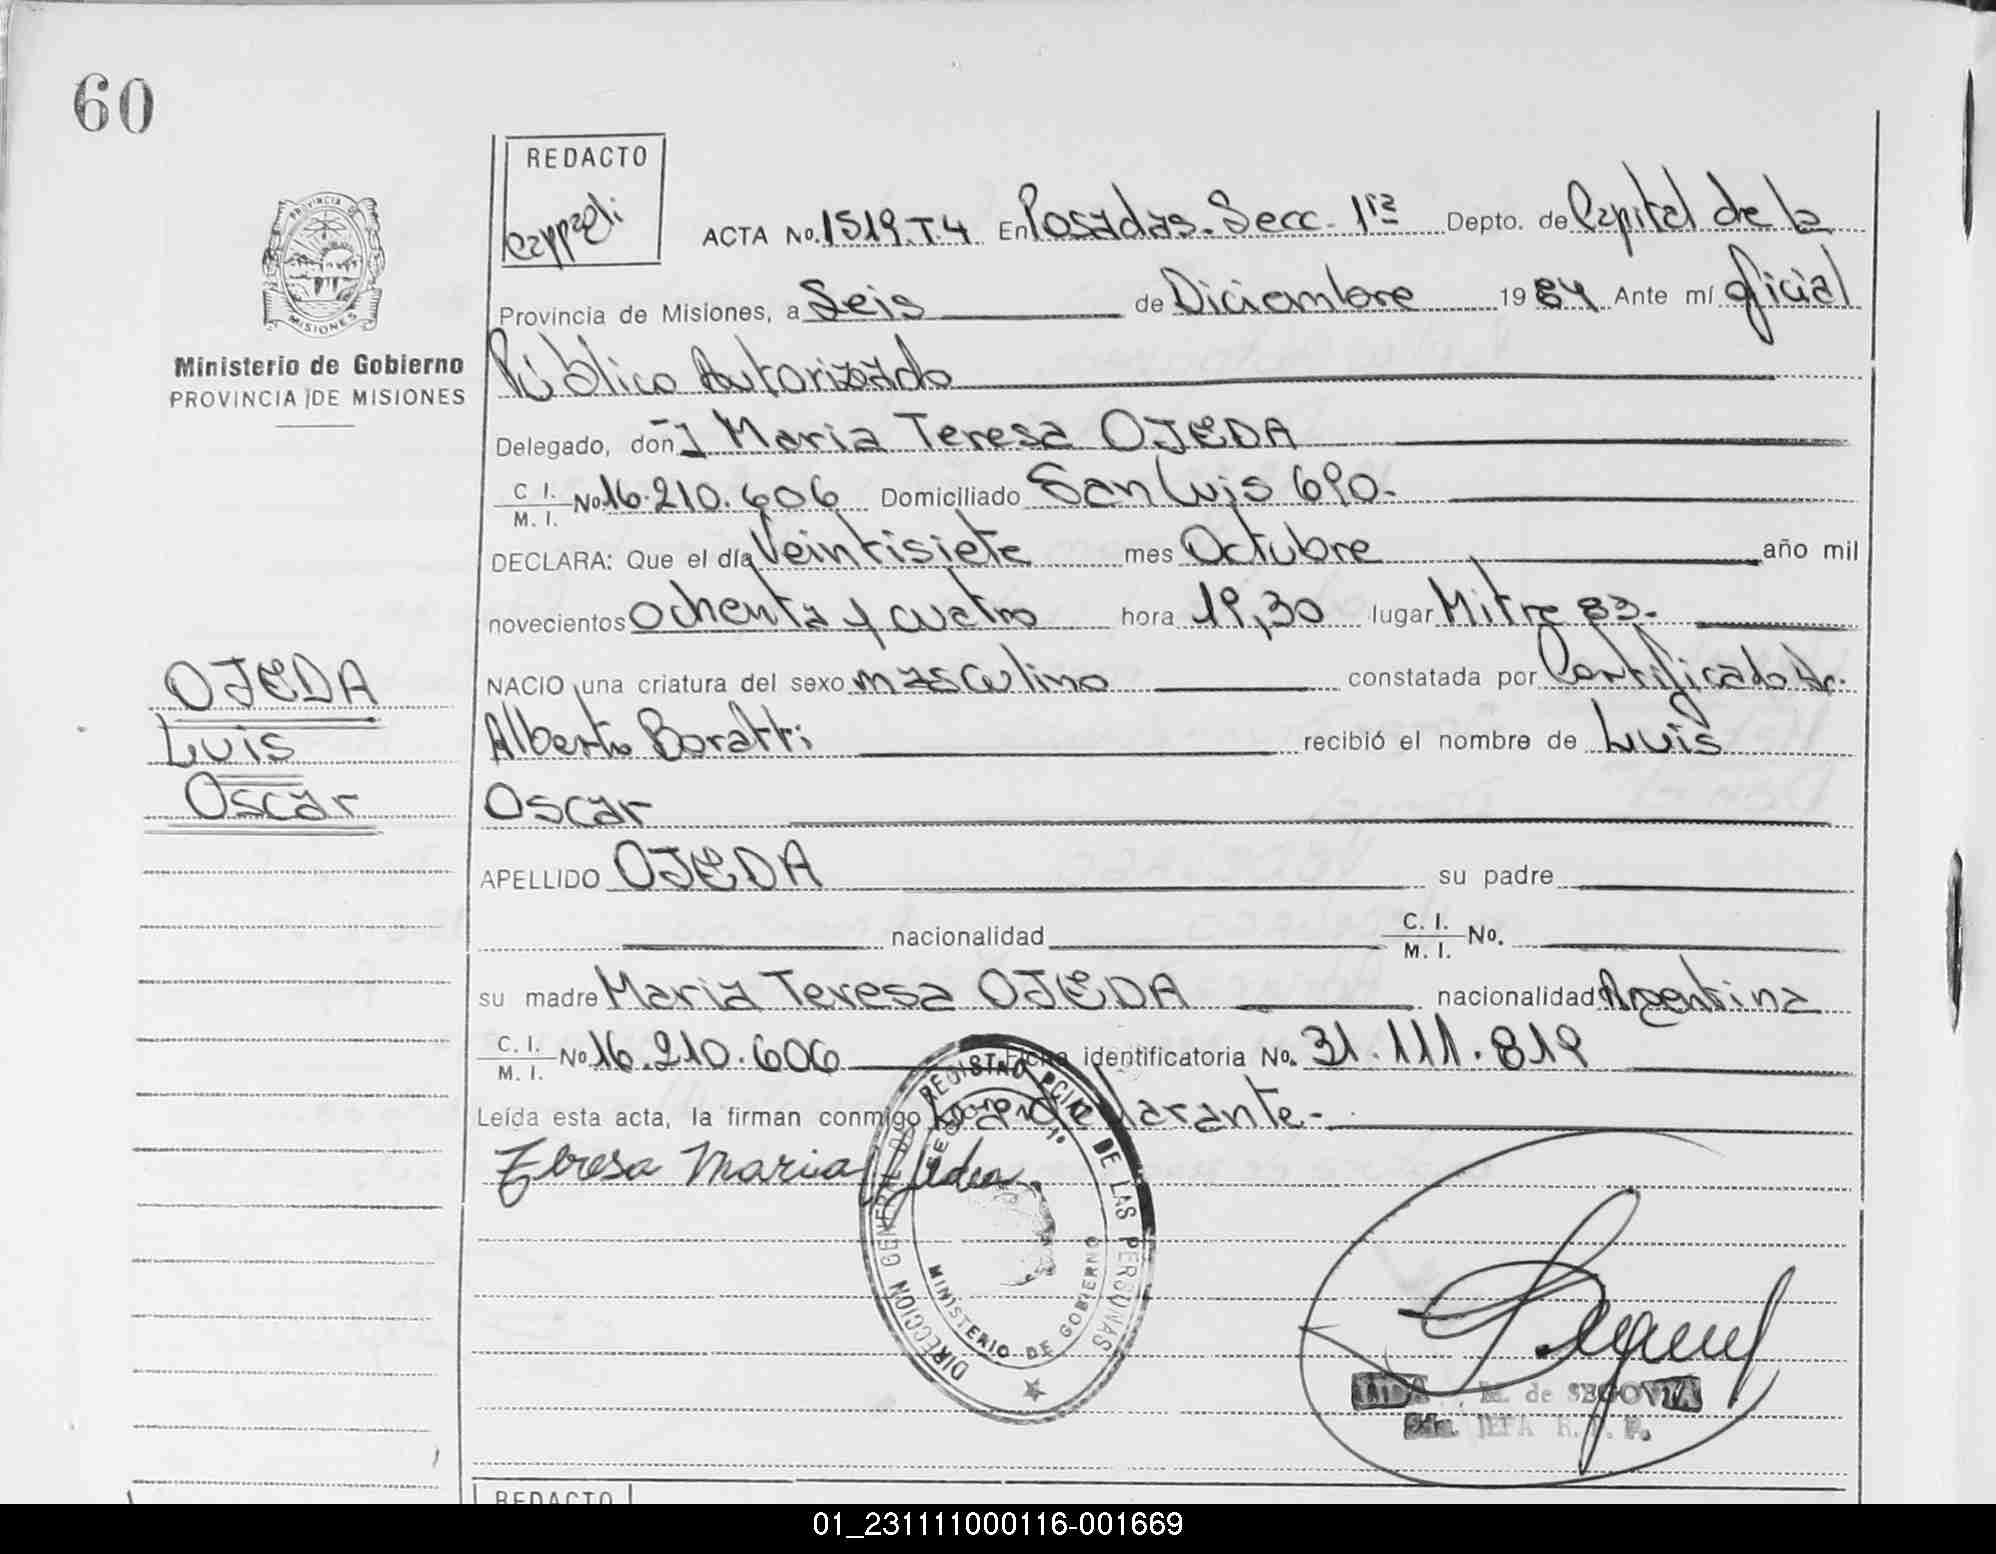 60
REDACTO
PROVINCIA DE
MISIONES
Ministerio de Gobierno
PROVINCIA DE MISIONES
ACTA No. 1519.T.4 En Posadas. Secc. 1ra Depto. de Capital de la
Provincia de Misiones, a Seis de Diciembre 1984 Ante mí oficial
Público Autorizado
Delegado, don Maria Teresa OJEDA
C. I. M. I. No 16.210.606 Domiciliado San Luis 690.
DECLARA: Que el día Veintisiete mes Octubre año mil
novecientos ochenta y cuatro hora 19,30 lugar Mitre 83.
NACIO una criatura del sexo masculino constatada por Certificado Dr.
Alberto Boratti recibió el nombre de Luis
Oscar
OJEDA
Luis
Oscar
APELLIDO OJEDA su padre
nacionalidad C. I. M. I. No.
su madre Maria Teresa OJEDA nacionalidad Argentina
C. I. M. I. No 16.210.606 Ficha identificatoria No. 31.111.819
Leída esta acta, la firman conmigo la declarante.-
Teresa Maria Ojeda
DIRECCION GENERAL DEL REGISTRO PCIAL DE LAS PERSONAS
MINISTERIO DE GOBIERNO
M. de SEGOVIA
JEFA R. P. P.
REDACTO
01_231111000116-001669